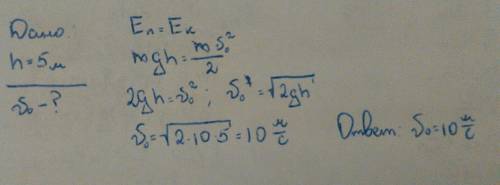 Дано:
h = 5м
υ₀ - ?
Eп = Eк
mgh = mυ₀²/2
2gh = υ₀² ; υ₀ = √2gh
υ₀ = √2·10·5 = 10 м/с
Ответ: υ₀ = 10 м/с